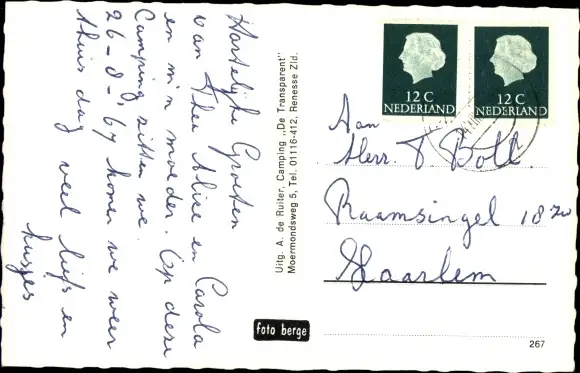 Hartelijke Groeten
van Theu Alice en Carola
en m'n moeder. Op deze
Camping zitten we.
26-8-'67 komen we weer
thuis dag veel liefs en
kusjes
Uitg. A. de Ruiter, Camping „De Transparent"
Moermondsweg 5, Tel. 01116-412, Renesse Zld.
foto berge
12 C
NEDERLAND
12 C
NEDERLAND
Aan
Herr. T Bott.
Raamsingel 18 zw
Haarlem
267